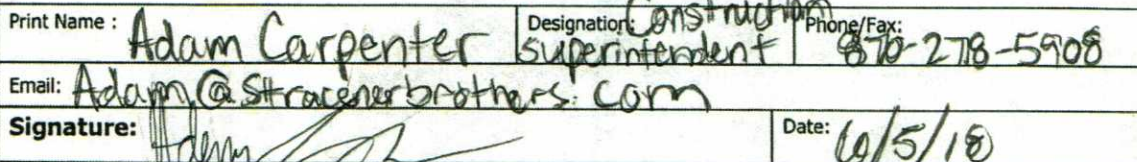 Print Name : Adam Carpenter Designation: Construction superintendent Phone/Fax: 870-278-5908
Email: Adam@stracenerbrothers.com
Signature: Adam Date: 6/5/18